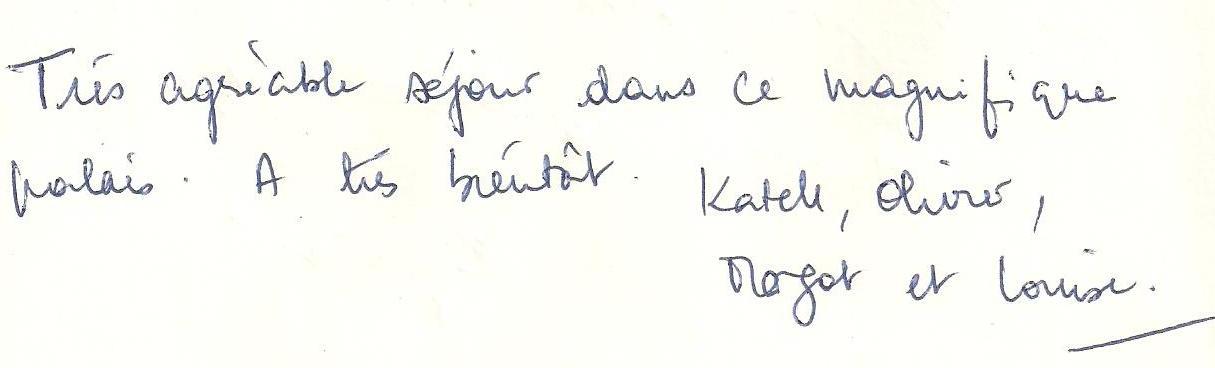 Très agrèable séjour dans ce magnifique
palais. A très bientôt. Katell, Olivier,
Margot et Louise.